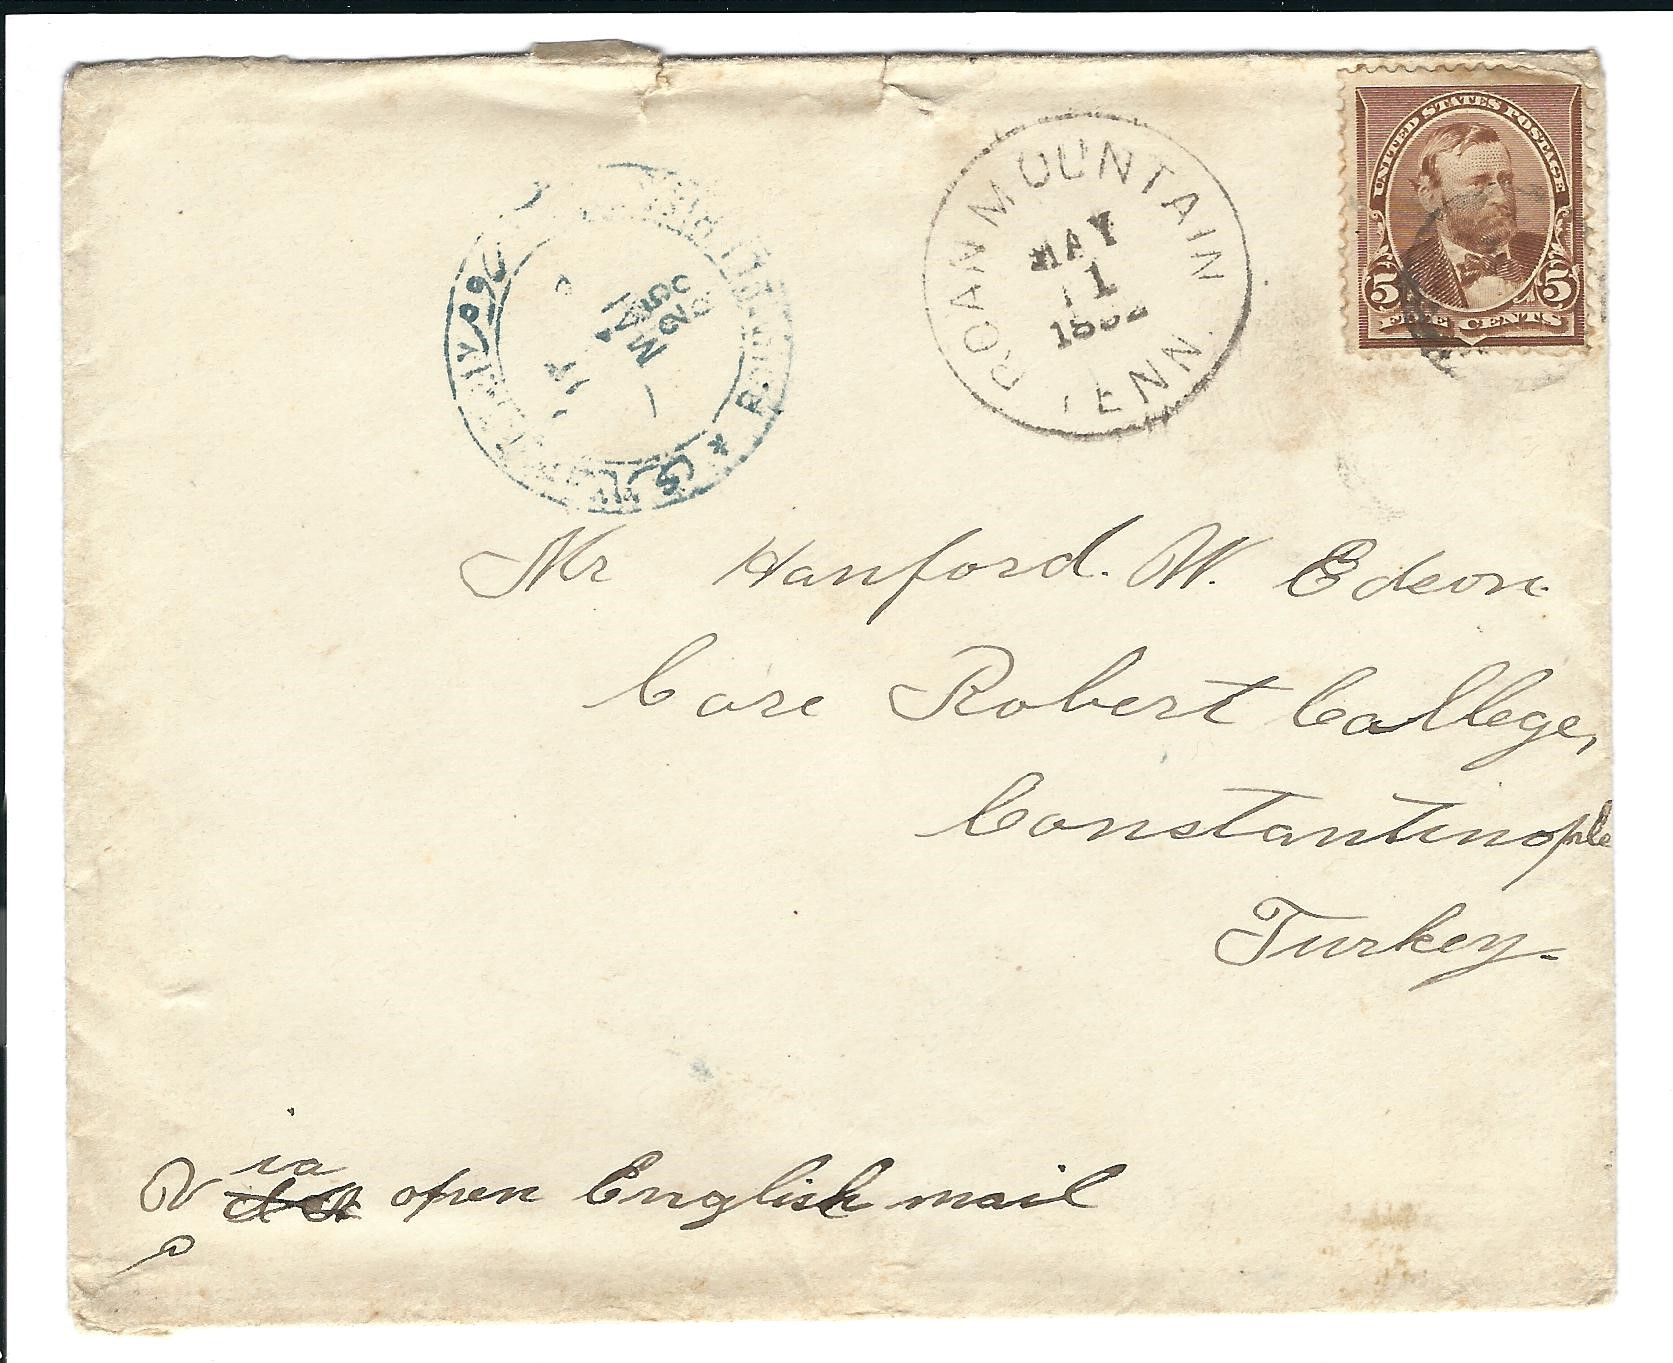 UNITED STATES POSTAGE
5 5
FIVE CENTS
ROAN MOUNTAIN
MAY
11
TENN.
Mr Hanford. W. Edson.
Care Robert College,
Constantinople
Turkey-
Via open English mail